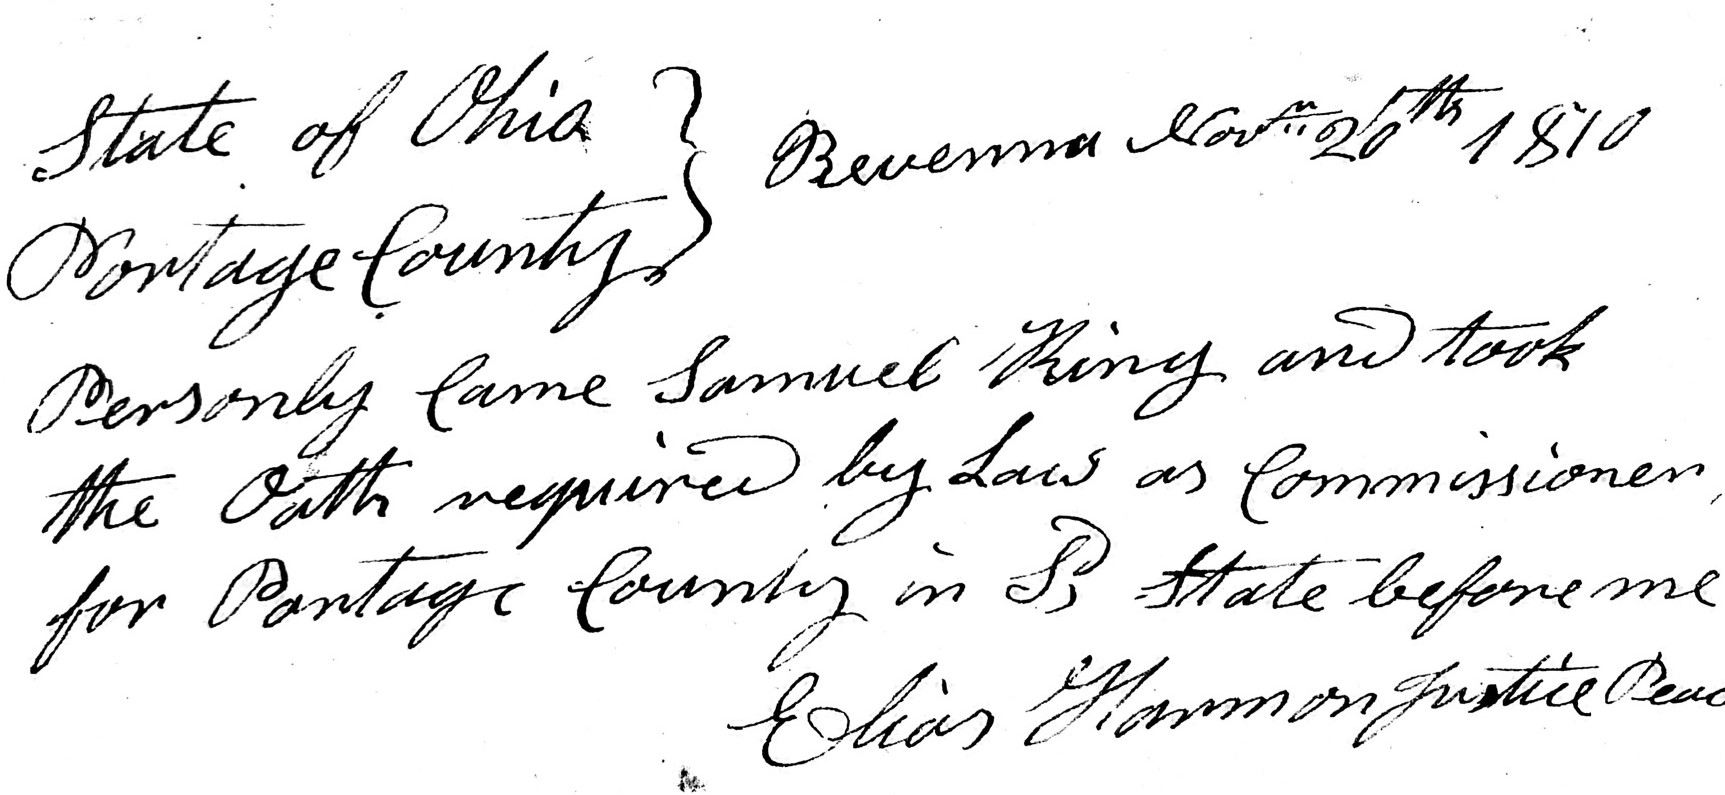 State of Ohio } Revenna Novm 20th 1810
Portage County
Personly Came Samuel King and took
the Oath required by Law as Commissioner
for Portage County in Sd State before me
Elias Harmon Justice Peac